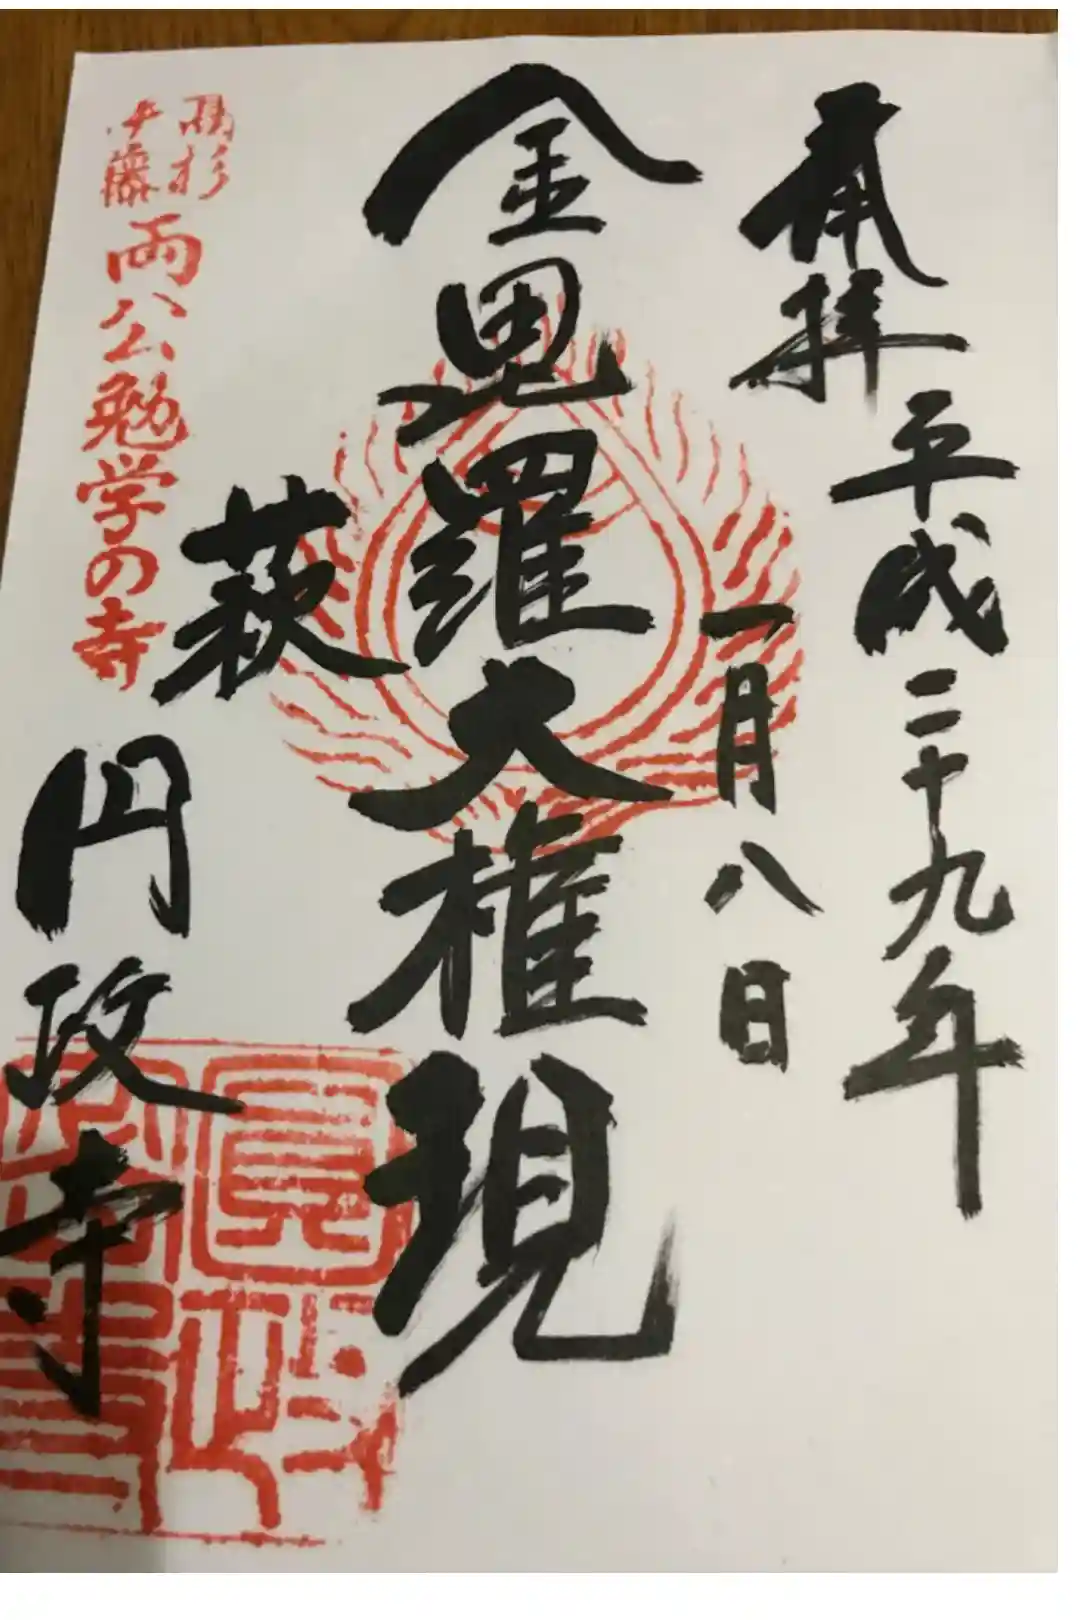 奉拝
平成二十九年
一月八日
金毘羅大権現
萩
円政寺
高杉
伊藤
両公勉学の寺